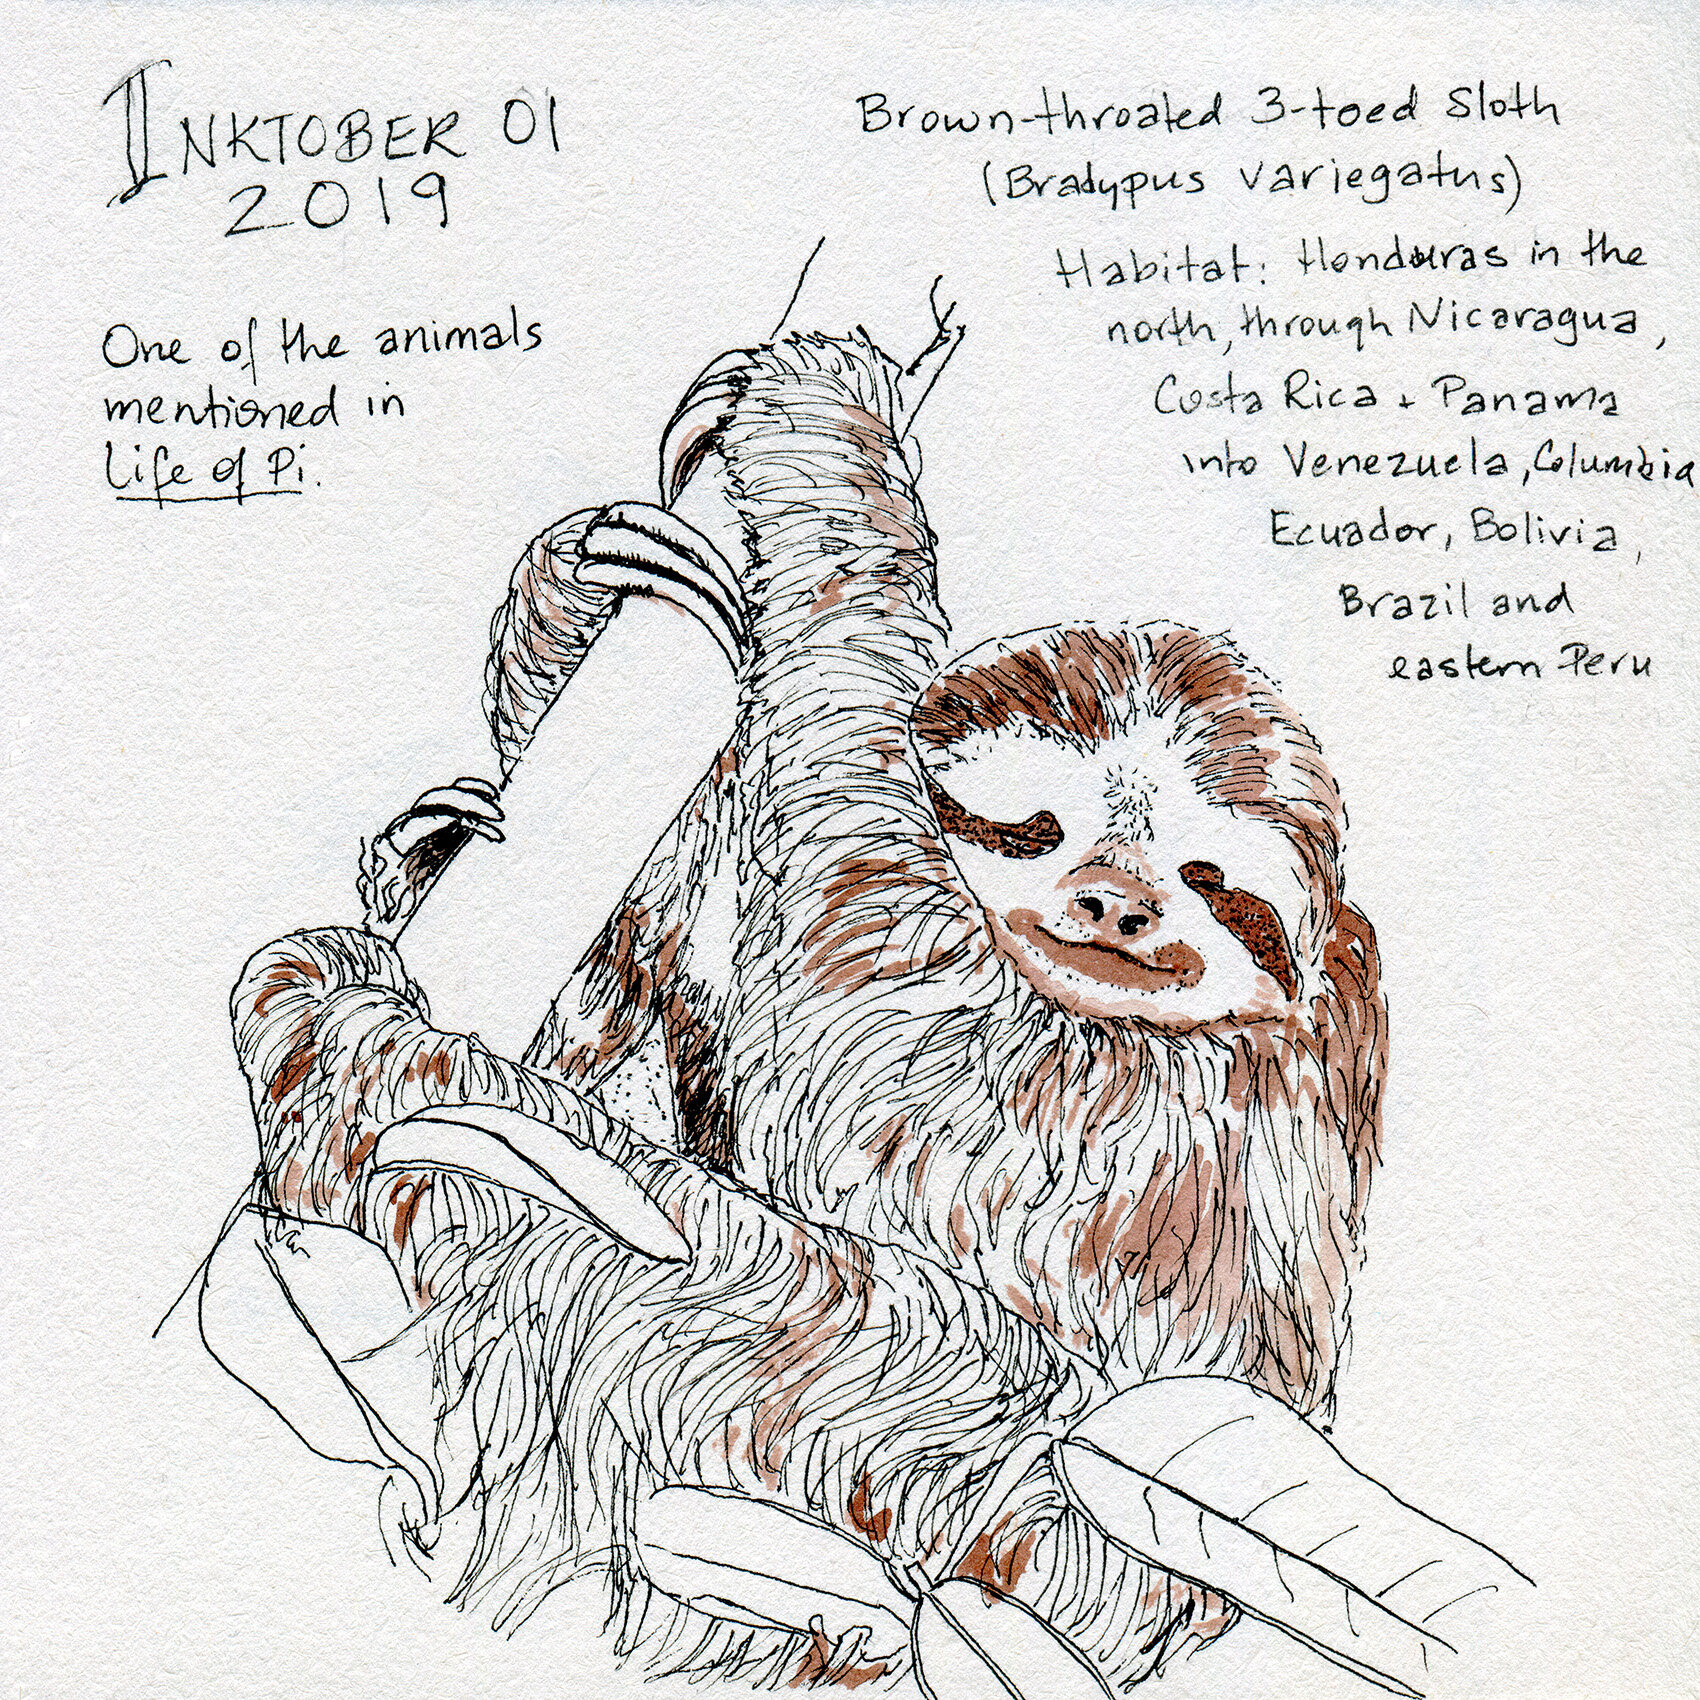 INKTOBER 01
2019
One of the animals
mentioned in
Life of Pi.
Brown-throated 3-toed Sloth
(Bradypus variegatus)
Habitat: Honduras in the
north, through Nicaragua,
Costa Rica + Panama
into Venezuela, Columbia
Ecuador, Bolivia,
Brazil and
eastern Peru